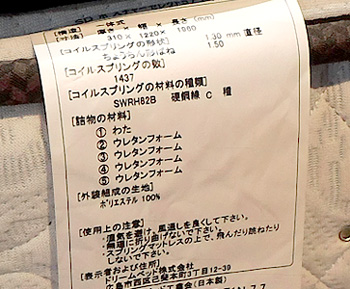 [構造] 一体式
[寸法] 厚さ × 幅 × 長さ (mm)
310 × 1220× 1980
[コイルスプリングの形状] 1.30 mm 直径
ちょうちんおばね 1.50
[コイルスプリングの数]
1437
[コイルスプリングの材料の種類]
SWRH82B 硬鋼線 C 種
[詰物の材料]
① わた
② ウレタンフォーム
③ ウレタンフォーム
④ ウレタンフォーム
⑤ ウレタンフォーム
[外装組成の生地]
ポリエステル 100%
[使用上の注意]
・湿気を避け、風通しを良くして下さい。
・無理に折り曲げないで下さい。
・スプリングマットレスの上で、飛んだり跳ねたり
しないで下さい。
[表示者および住所]
ドリームベッド株式会社
広島市西区己斐本町3丁目12-39
(日本製)